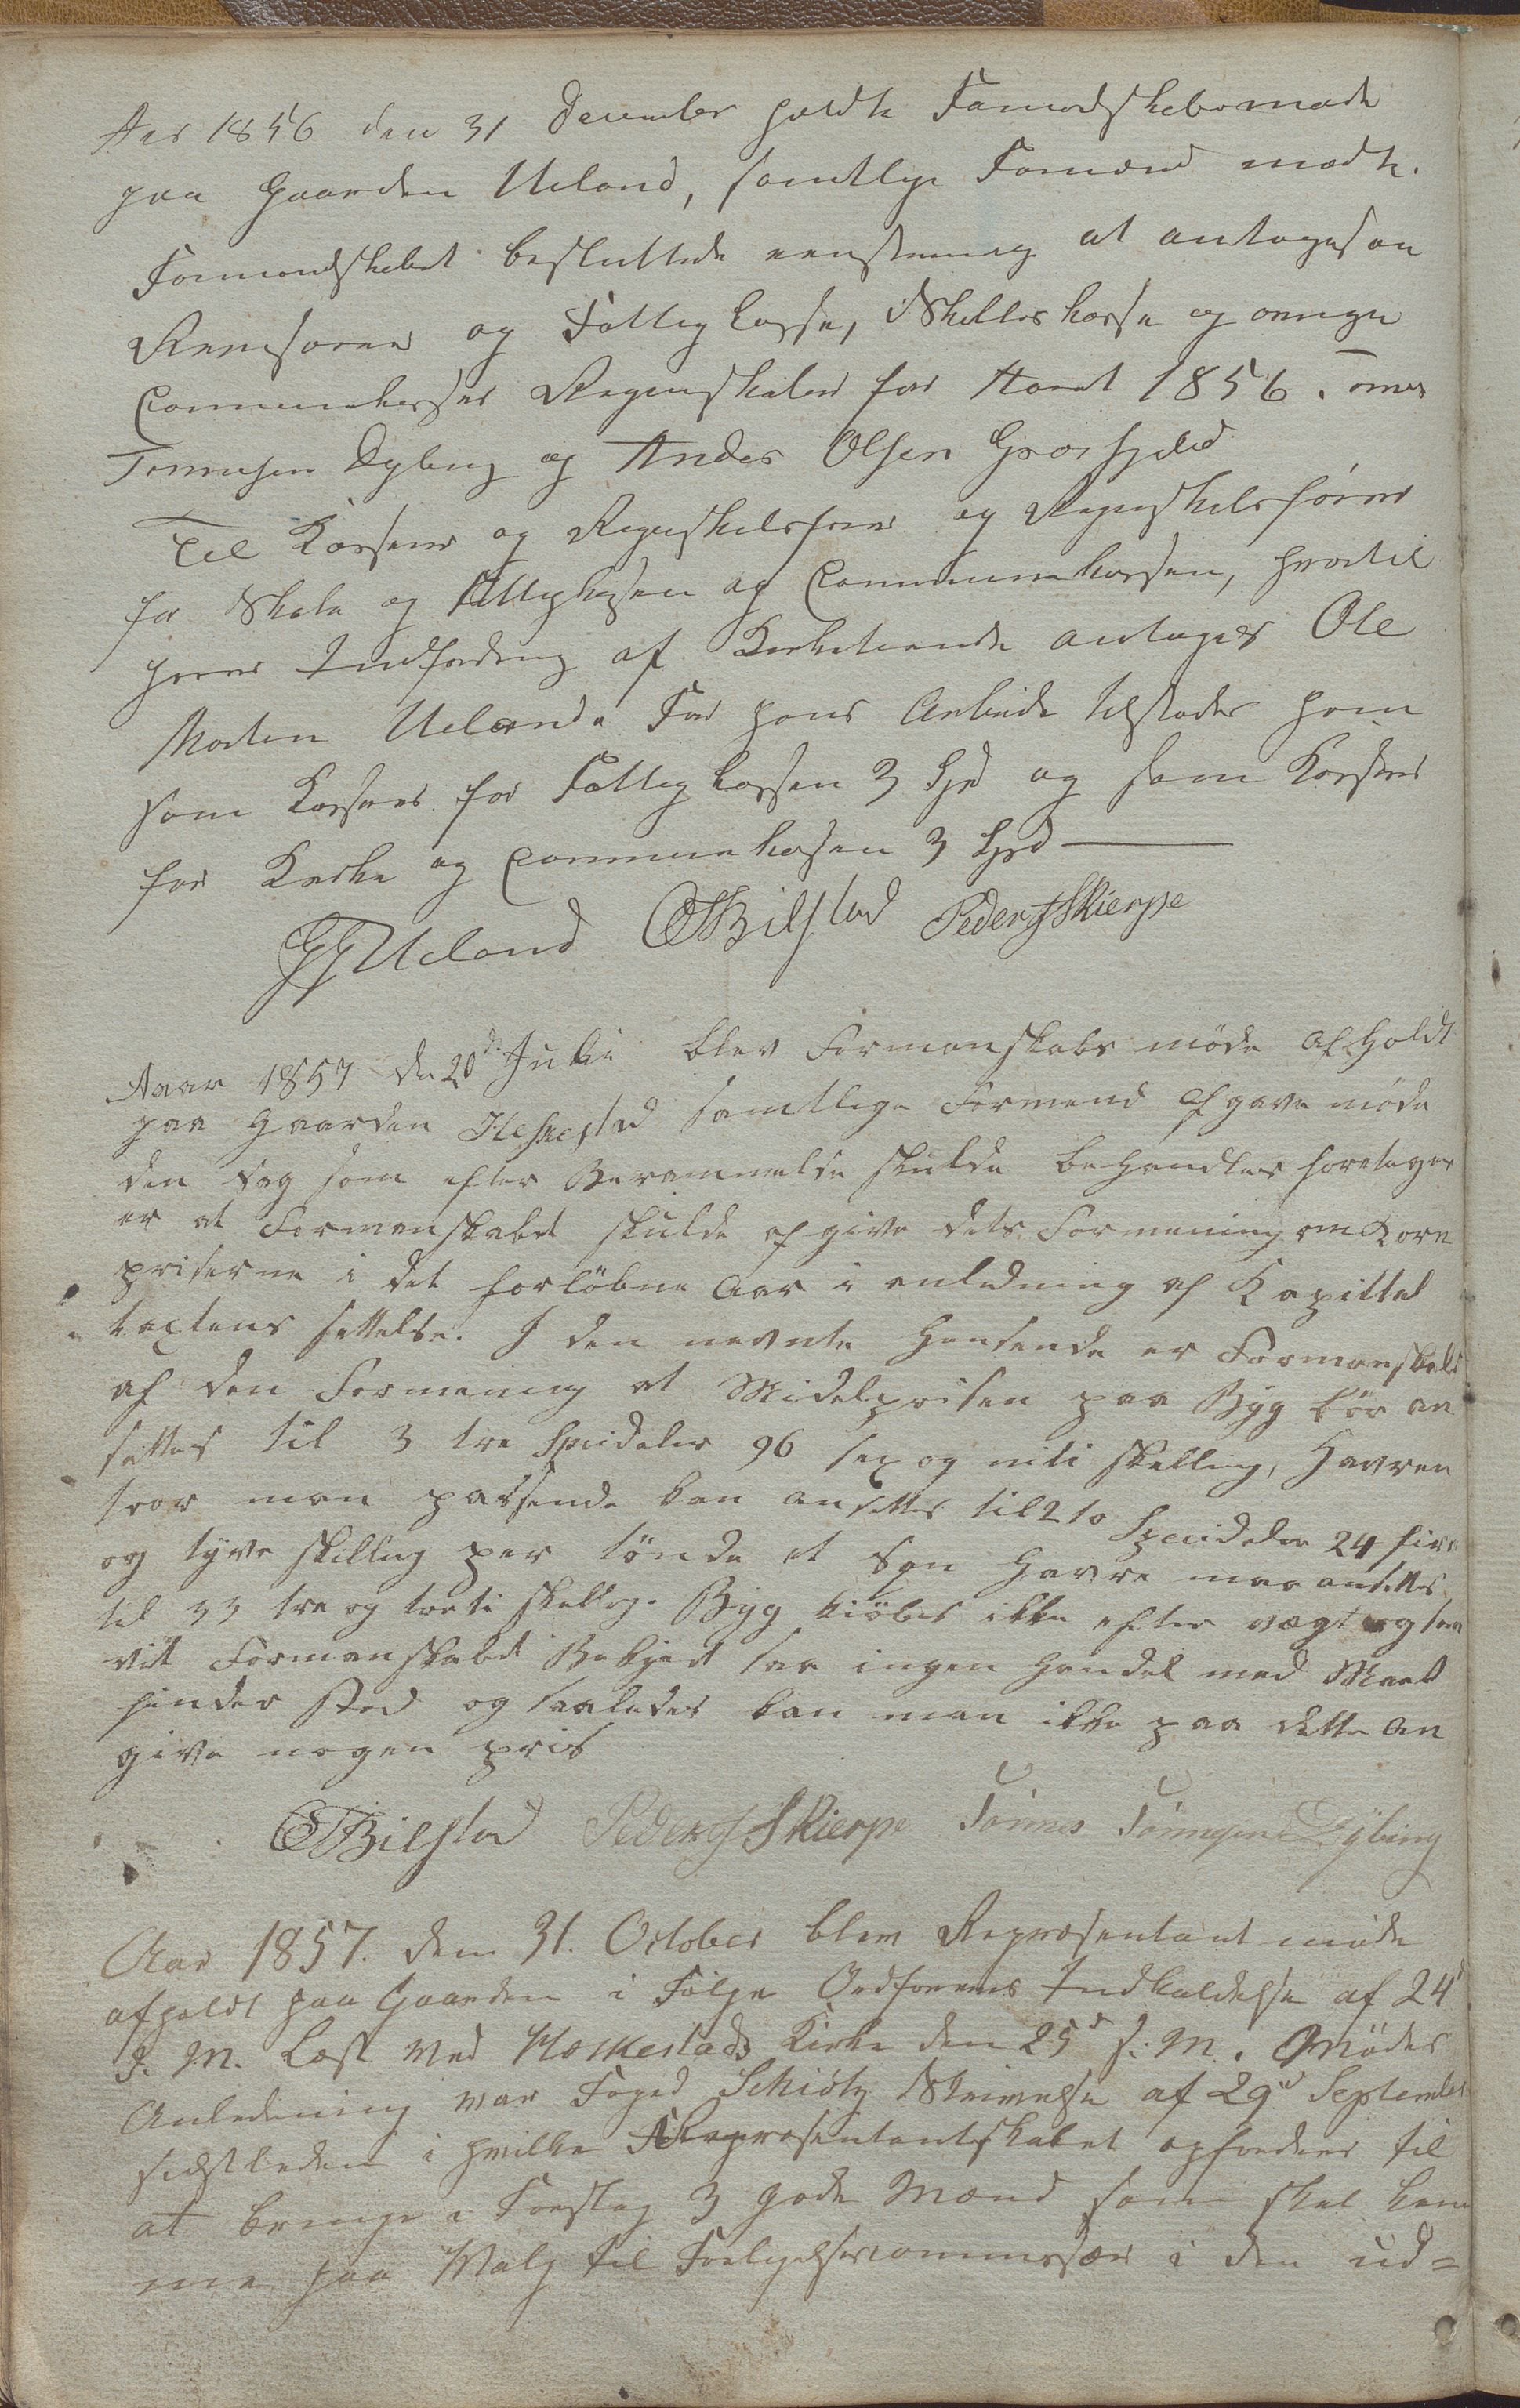 Aar 1856 den 31 December holdte Formandskabsmøde
paa Gaarden Ueland, samtlige Formænd mødte.
Formandskabet besluttede eenstemig at antages an
Revisorer og Fattigkasse, Skolleskasse og øvrige
Communekasser Regnskaber for Aaret 1856.
Tønnesen Dybing og Anders Olsen Grosfjeld
Til Kasserer og Regnskabsfører og Regnskabsfører
for Skole og Fattigkassen og Communekassen, hvortil
hører Indfordring af Kirketiende antages Ole
Morten Ueland. For hans Arbeide tilstodes ham
som Kasserer for Fattigkassen 3 Spd og som Kasserer
for Kirke og Communekassen 3 Spd
GGUeland OTBilstad Peder J Skierpe
Aaar 1857 de 20de Julie blev Formanskabs møde afholdt
paa Gaarden Heskestad samtlige Formend afgave møde
den Sag som efter Berammelse skulde behandles foretages
er at Formanskabet skulde afgive dets Formening om Korn
priserne i det forløbne Aar i anledning af Kapittel
taxtens settelse. I den nevnte Hensende er Formanskabet
af den Formening at Midelprisen paa Byg bør an
settes til 3 tre Speidaler 96 sex og niti skelling, Havren
tror man passende kan ansettes til 2 to Speeidaler 24 fire
og tyve skilling per tønde et Spn Havre maa ansettes
til 33 tre og treti skelling. Byg kiøbes ikke efter vægt og saa
vit Formanskabet Bekjent saa ingen Handel med Meel
finder sted og saaledes kan man ikke paa dette an
give nogen pris
OTBilstad Peder J Skierpe Tønnes Tønnesen Dybing
Aar 1857. den 31. October blev Repræsentant møde
afholdt paa Gaarden i Følge Ordførens Indkaldelse af 24d
d. M. Læst ved Heskestads Kirke den 25d s. M. Mødes
Anledning var Foged Schiøtz Skrivelse af 29d September
sidstleden i hvilke Repræsentantskabet opfordres til
at bringe i Forslag 3 gode Mænd som skal kom
me paa Valg til Forligelsescommissær i den ud=